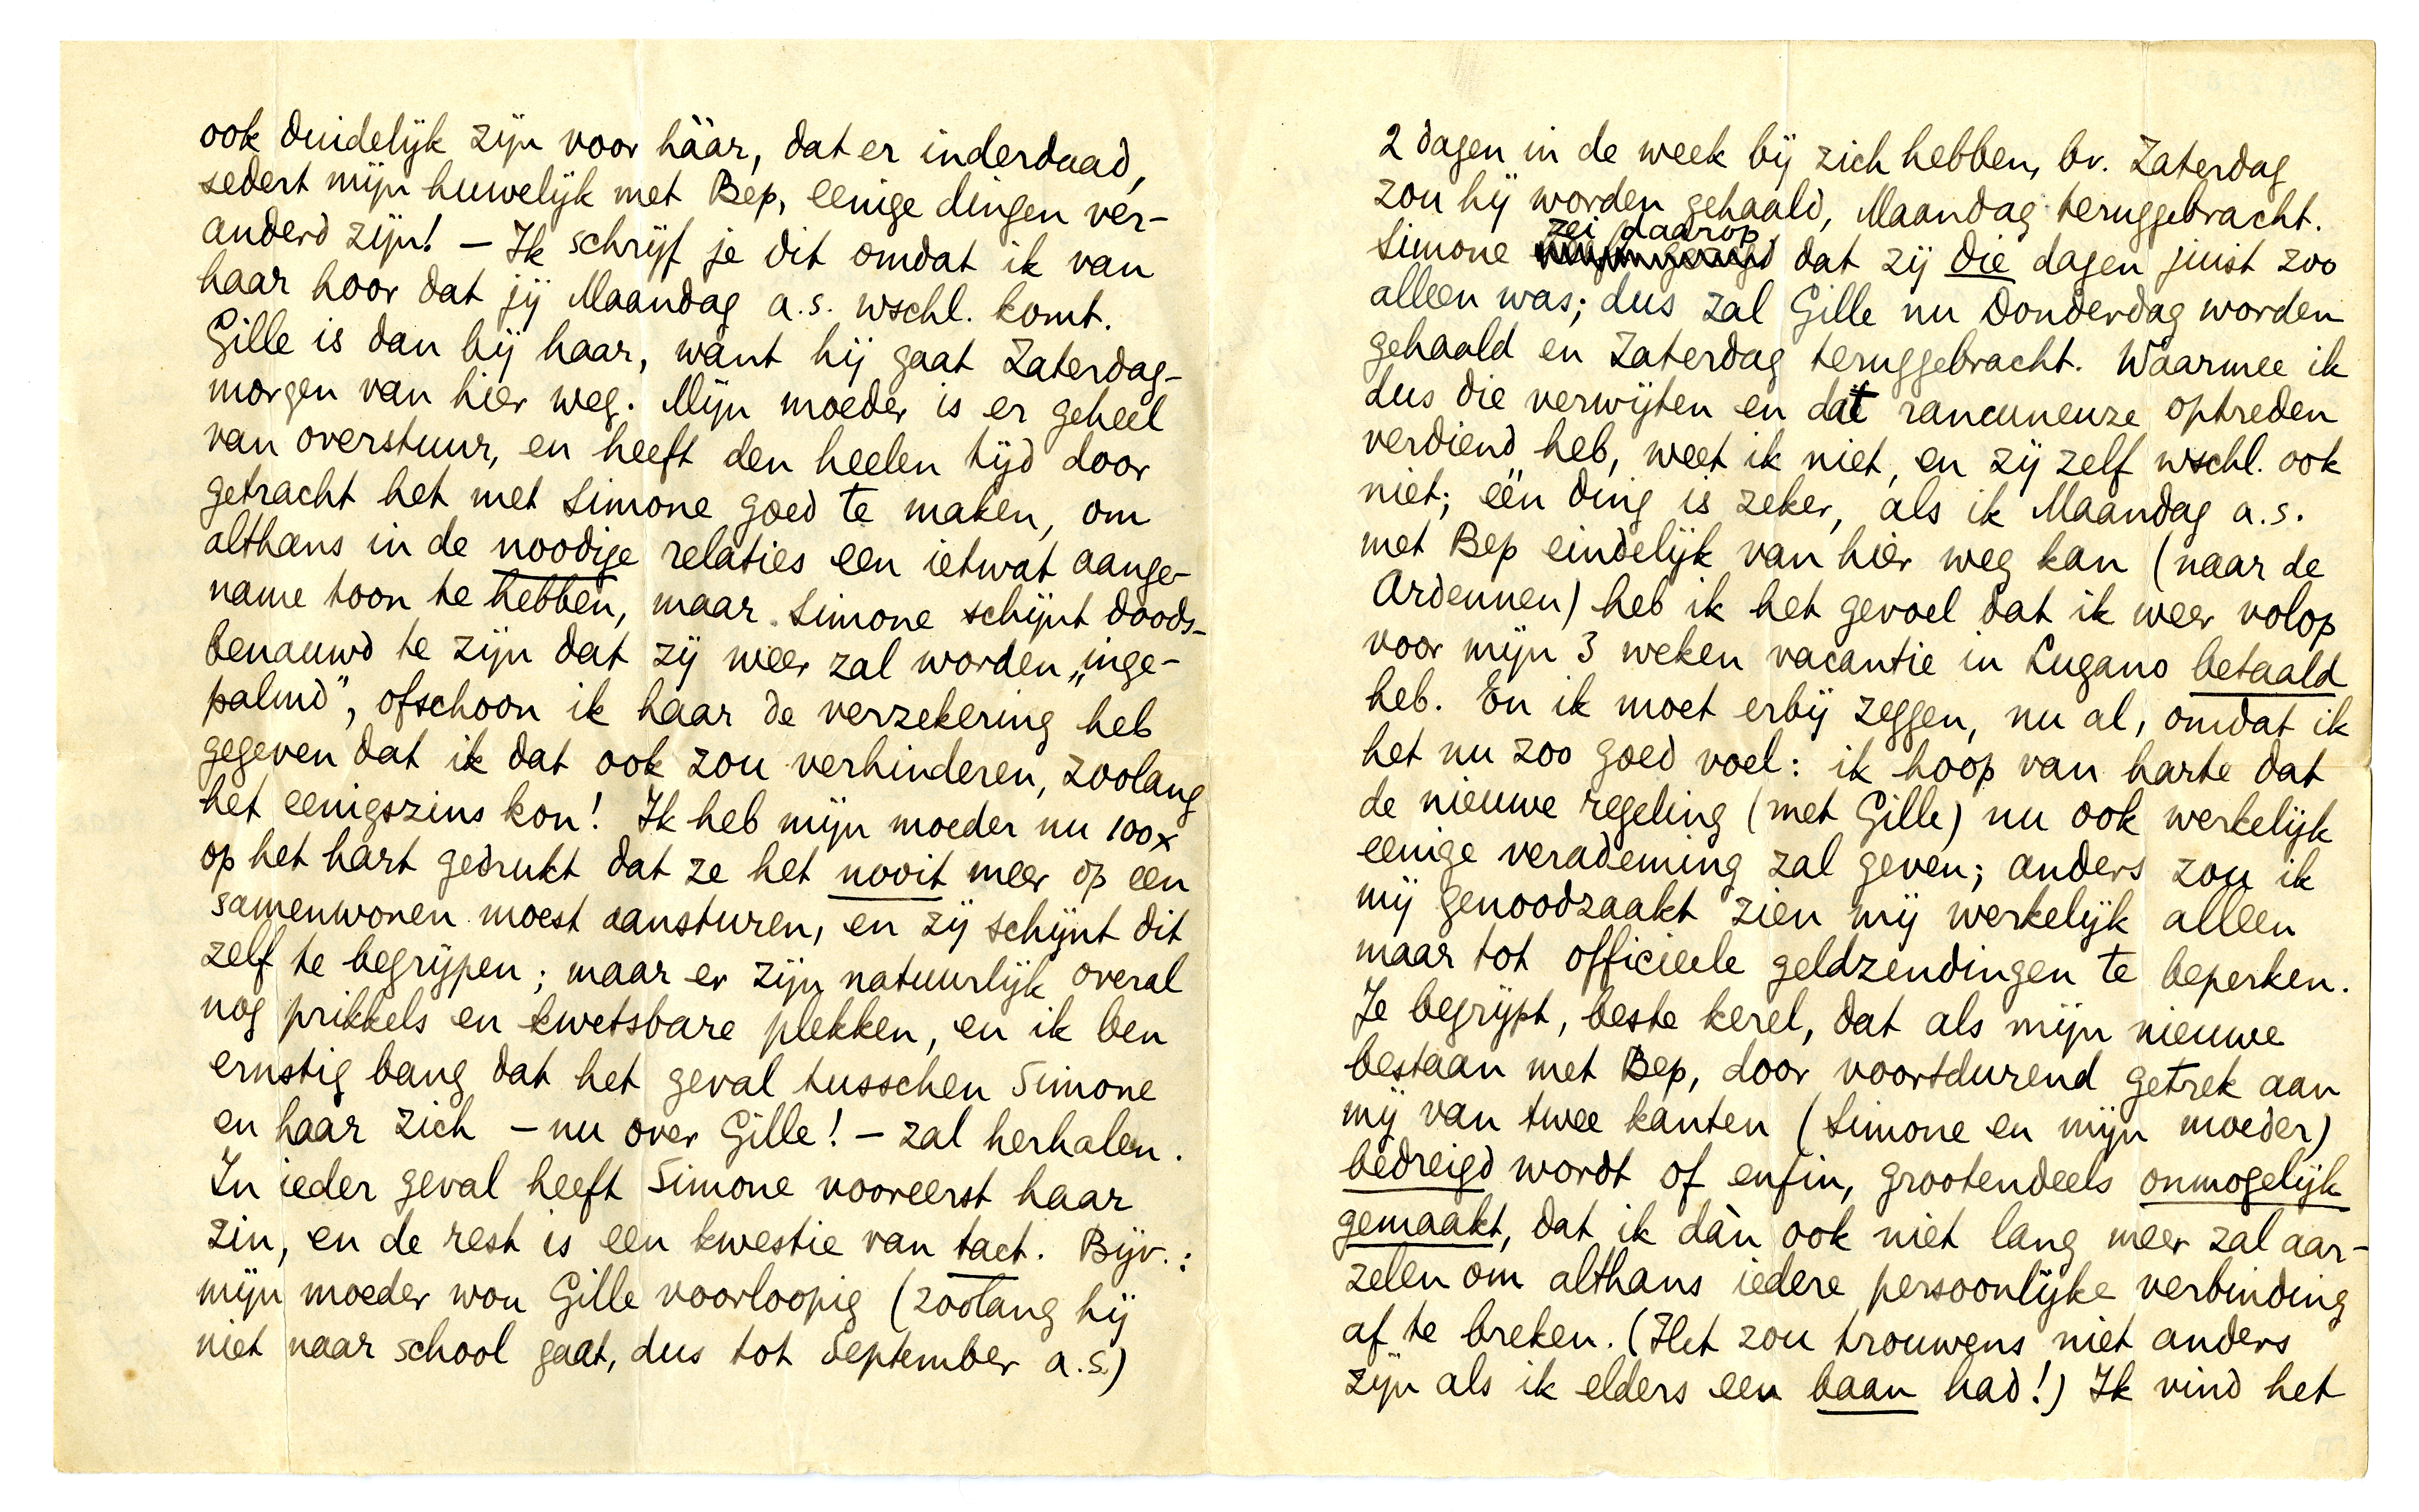 ook duidelijk zijn voor háár, dat er inderdaad,
sedert mijn huwelijk met Bep, eenige dingen ver-
anderd zijn! — Ik schrijf je dit omdat ik van
haar hoor dat jij Maandag a.s. wschl. komt.
Gille is dan bij haar, want hij gaat Zaterdag-
morgen van hier weg. Mijn moeder is er geheel
van overstuur, en heeft den heelen tijd door
getracht het met Simone goed te maken, om
althans in de noodige relaties een ietwat aange-
name toon te hebben, maar Simone schijnt doods-
benauwd te zijn dat zij weer zal worden „inge-
palmd”, ofschoon ik haar de verzekering heb
gegeven dat ik dat ook zou verhinderen, zoolang
het eenigszins kon! Ik heb mijn moeder nu 100x
op het hart gedrukt dat ze het nooit meer op een
samenwonen moest aansturen, en zij schijnt dit
zelf te begrijpen; maar er zijn natuurlijk overal
nog prikkels en kwetsbare plekken, en ik ben
ernstig bang dat het geval tusschen Simone
en haar zich — nu over Gille! — zal herhalen.
In ieder geval heeft Simone vooreerst haar
zin, en de rest is een kwestie van tact. Bijv.:
mijn moeder wou Gille voorloopig (zoolang hij
niet naar school gaat, dus tot September a.s.)
2 dagen in de week bij zich hebben, bv. Zaterdag
zou hij worden gehaald, Maandag teruggebracht.
zei daarop
Simone dat zij die dagen juist zoo
alleen was; dus zal Gille nu Donderdag worden
gehaald en Zaterdag teruggebracht. Waarmee ik
dus die verwijten en dat rancuneuze optreden
verdiend heb, weet ik niet, en zij zelf wschl. ook
niet; één ding is zeker, als ik Maandag a.s.
met Bep eindelijk van hier weg kan (naar de
Ardennen) heb ik het gevoel dat ik weer volop
voor mijn 3 weken vacantie in Lugano betaald
heb. En ik moet erbij zeggen, nu al, omdat ik
het nu zoo goed voel: ik hoop van harte dat
de nieuwe regeling (met Gille) nu ook werkelijk
eenige verademing zal geven; anders zou ik
mij genoodzaakt zien mij werkelijk alleen
maar tot officieele geldzendingen te beperken.
Je begrijpt, beste kerel, dat als mijn nieuwe
bestaan met Bep, door voortdurend getrek aan
mij van twee kanten (Simone en mijn moeder)
bedreigd wordt of enfin, grootendeels onmogelijk
gemaakt, dat ik dàn ook niet lang meer zal aar-
zelen om althans iedere persoonlijke verbinding
af te breken. (Het zou trouwens niet anders
zijn als ik elders een baan had!) Ik vind het